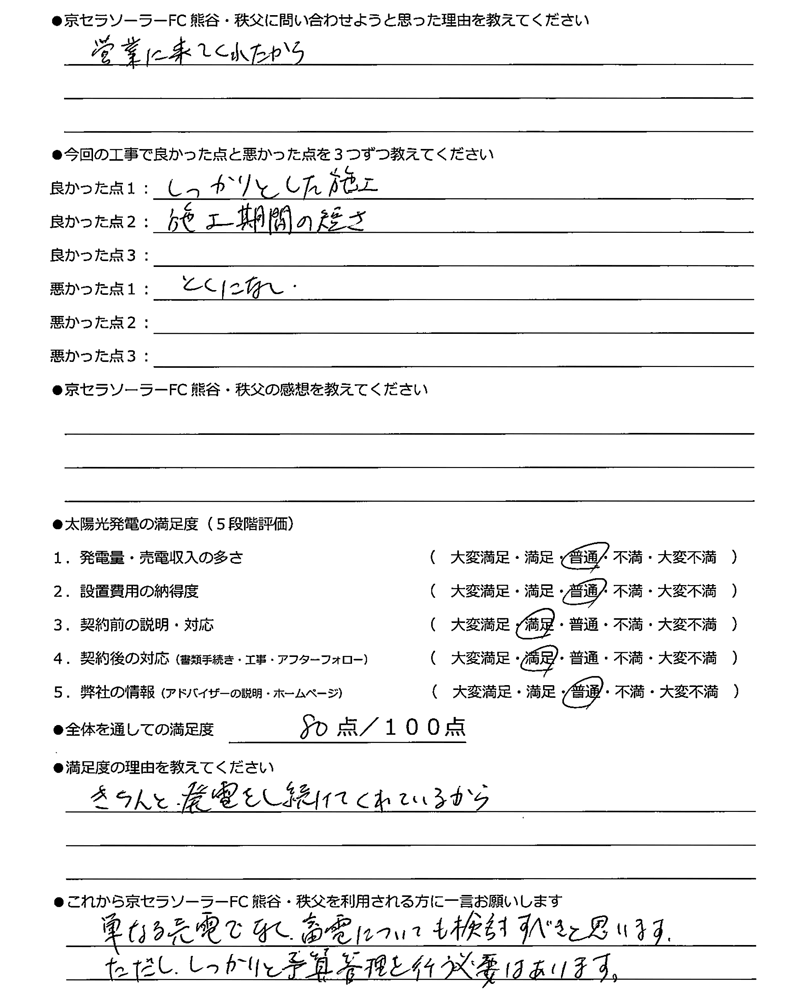 ●京セラソーラーFC 熊谷・秩父に問い合わせようと思った理由を教えてください
営業に来てくれたから
●今回の工事で良かった点と悪かった点を３つずつ教えてください
良かった点１： しっかりとした施工
良かった点２： 施工期間の短さ
良かった点３：
悪かった点１： とくになし．
悪かった点２：
悪かった点３：
●京セラソーラーFC 熊谷・秩父の感想を教えてください
●太陽光発電の満足度（５段階評価）
１．発電量・売電収入の多さ （ 大変満足・満足・普通・不満・大変不満 ）
２．設置費用の納得度 （ 大変満足・満足・普通・不満・大変不満 ）
３．契約前の説明・対応 （ 大変満足・満足・普通・不満・大変不満 ）
４．契約後の対応（書類手続き・工事・アフターフォロー） （ 大変満足・満足・普通・不満・大変不満 ）
５．弊社の情報（アドバイザーの説明・ホームページ） （ 大変満足・満足・普通・不満・大変不満 ）
●全体を通しての満足度 80 点／１００点
●満足度の理由を教えてください
きちんと、発電をし続けてくれているから
●これから京セラソーラーFC 熊谷・秩父を利用される方に一言お願いします
単なる売電でなく、畜電についても検討すべきと思います。
ただし、しっかりと予算管理を行う必要はあります。